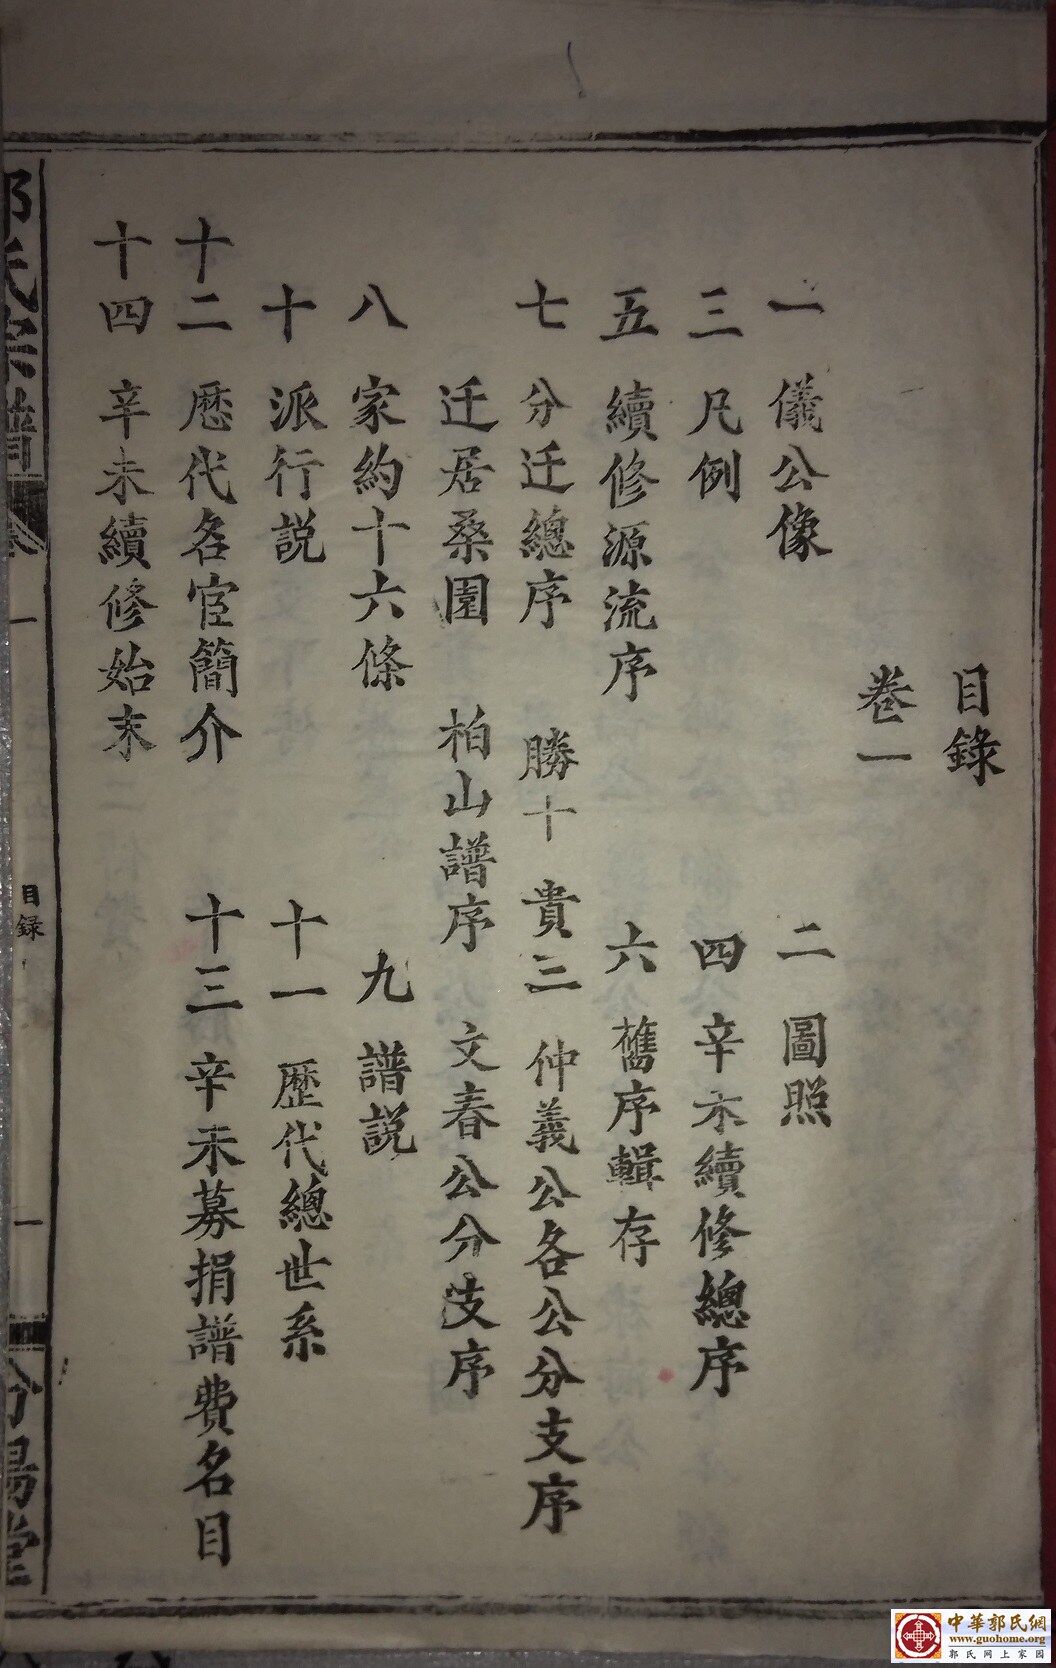 目錄
卷一
一 儀公像 二 圖照
三 凡例 四 辛未續修總序
五 續修源流序 六 舊序輯存
七 分迁總序 勝十 貴三 仲義公各公分支序
迁居桑園 柏山譜序 文春公分支序
八 家約十六條 九 譜説
十 派行説 十一 歷代總世系
十二 歷代名宦簡介 十三 辛未募捐譜費名目
十四 辛未續修始末
郭氏宗譜 卷一 目録 一 汾陽堂
中華郭氏網
www.guohome.org
郭氏网上家园